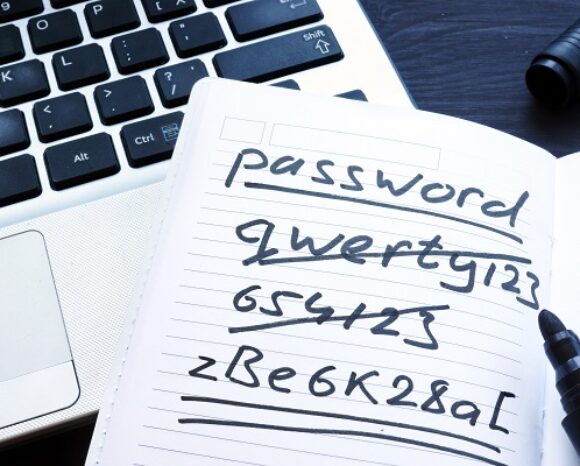 O P
K L Shift
< > ? /
Alt Ctrl
password
qwerty123
654123
zBe6K28a[